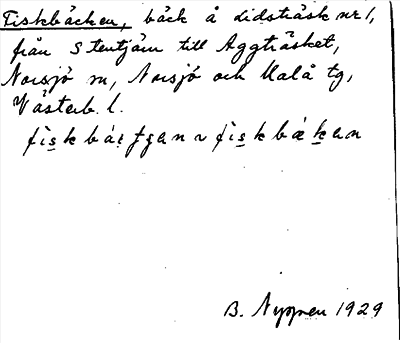 Fiskbäcken, bäck å Lidsträsk nr 1,
från Stentjärn till Aggträsket,
Norsjö sn, Norsjö och Malå tg,
Västerb. l.
B. Nyman 1929